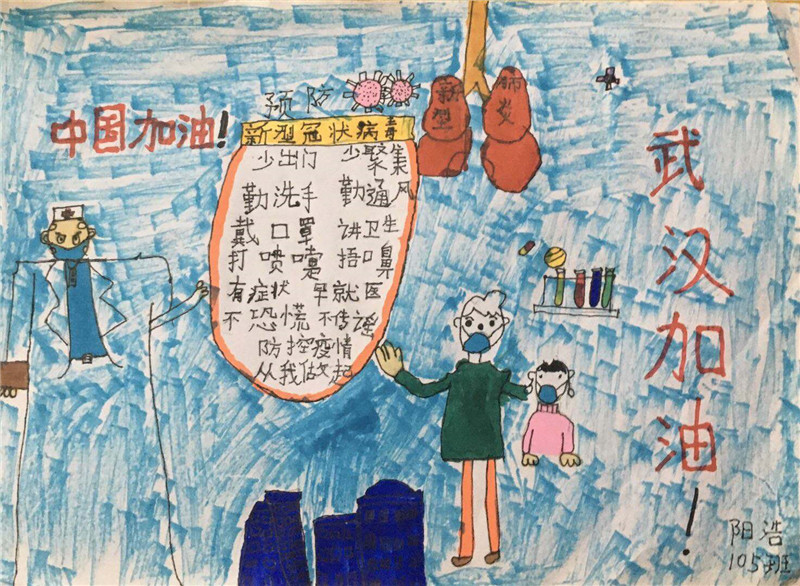 中国加油!
预防
新型冠状病毒
少出门 少聚集
勤洗手 勤通风
戴口罩 讲卫生
打喷嚏 捂口鼻
有症状 早就医
不恐慌 不传谣
防控疫情
从我做起
新型
肺炎
武汉加油!
阳浩
105班